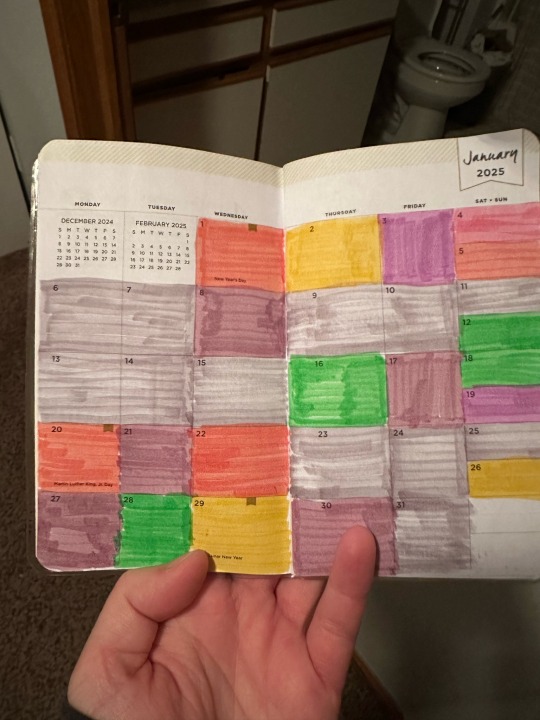 January
2025
MONDAY TUESDAY WEDNESDAY THURSDAY FRIDAY SAT + SUN
DECEMBER 2024
S M T W T F S
1 2 3 4 5 6 7
8 9 10 11 12 13 14
15 16 17 18 19 20 21
22 23 24 25 26 27 28
29 30 31
FEBRUARY 2025
S M T W T F S
1
2 3 4 5 6 7 8
9 10 11 12 13 14 15
16 17 18 19 20 21 22
23 24 25 26 27 28
1 2 3 4
New Year's Day
5
6 7 8 9 10 11
12
13 14 15 16 17 18
19
20 21 22 23 24 25
Martin Luther King, Jr. Day
26
27 28 29 30 31
New Year